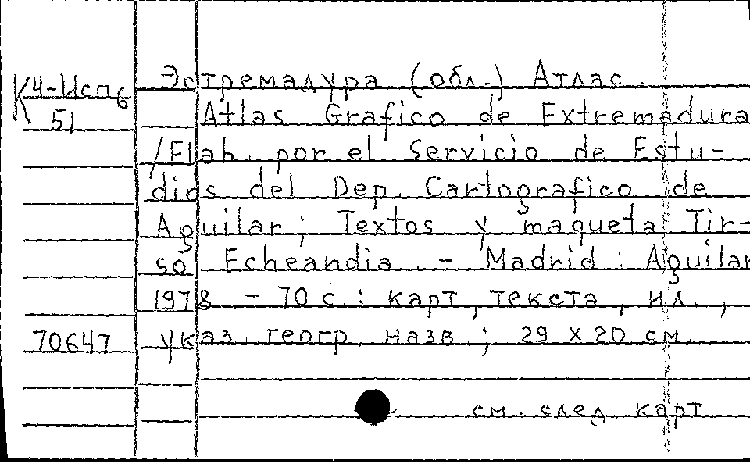 К4-Исп6
51
Эстремадура (обл.) Атлас.
Atlas Grafico de Extremadura
/Elab. por el Servicio de Estu-
dios del Dep. Cartografico de
Aguilar; Textos y maqueta Tir-
so Echeandia. - Madrid : Aguilar
1978 - 70 с. : карт, текста, ил.,
70647 указ. геогр. назв ; 29 x 20 см.
см. след. карт